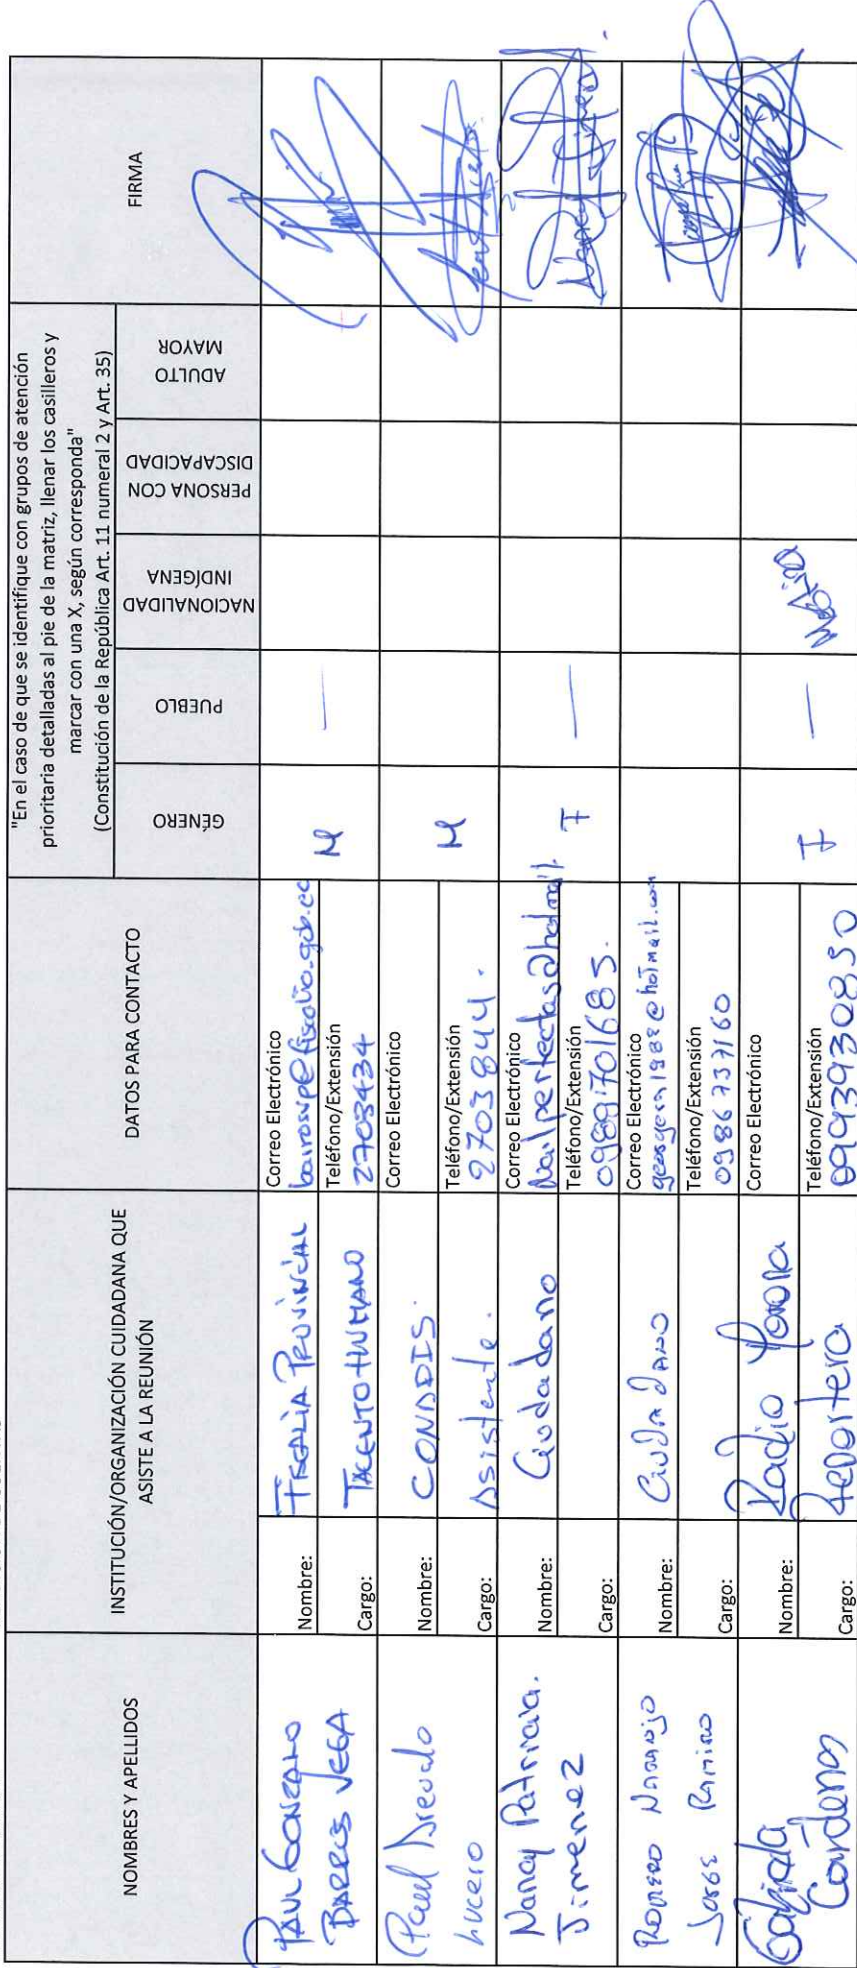 NOMBRES Y APELLIDOS
INSTITUCIÓN/ORGANIZACIÓN CUIDADANA QUE
ASISTE A LA REUNIÓN
DATOS PARA CONTACTO
"En el caso de que se identifique con grupos de atención
prioritaria detalladas al pie de la matriz, llenar los casilleros y
marcar con una X, según corresponda"
(Constitución de la República Art. 11 numeral 2 y Art. 35)
GÉNERO
PUEBLO
NACIONALIDAD
INDÍGENA
PERSONA CON
DISCAPACIDAD
ADULTO
MAYOR
FIRMA
PAUL GONZALO
BARROS VEGA
Nombre: FISCALIA PROVINCIAL
Cargo: TALENTO HUMANO
Correo Electrónico
Teléfono/Extensión
2703434
M
—
Paul Arevalo
Lucero
Nombre: CONADIS.
Cargo: Asistente.
Correo Electrónico
Teléfono/Extensión
2703844.
M
Nancy Patricia.
Jimenez
Nombre: Ciudadano
Cargo:
Correo Electrónico
Teléfono/Extensión
0989701685.
F
—
Romero Naranjo
Jorge Ramiro
Nombre: CIUDADANO
Cargo:
Correo Electrónico
Teléfono/Extensión
0986737160
Gabriela
Cardenas
Nombre: Radio
Cargo: Reportera
Correo Electrónico
Teléfono/Extensión
0993930850
F
—